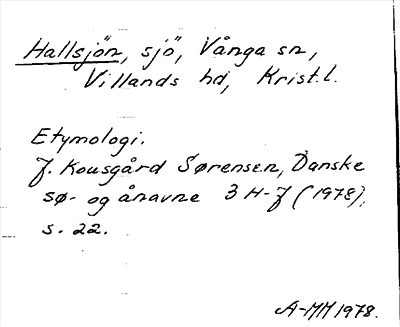 Hallsjön, sjö, Vånga sn,
Villands hd, Krist.l.
Etymologi.
J. Kousgård Sørensen, Danske
sø- og ånavne 3 H-J (1978),
s. 22.
A-MH 1978.